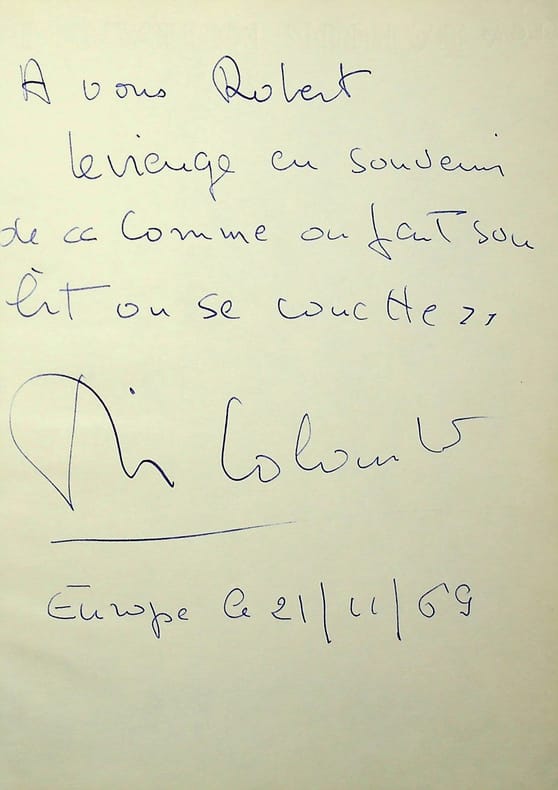 A vous Robert
levieuge en souvenir
de << Comme on fait son
lit on se couche >>
Pia Colombo
Europe le 21/11/69